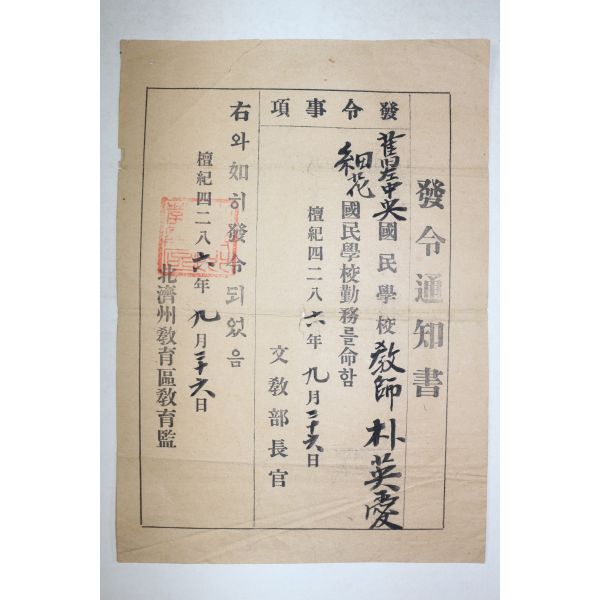 發令通知書
發令事項
舊左中央國民學校敎師 朴英愛
細花國民學校勤務를命함
檀紀四二八六年九月二十六日
文敎部長官
右와如히發令되었음
檀紀四二八六年九月二十六日
北濟州敎育區敎育監